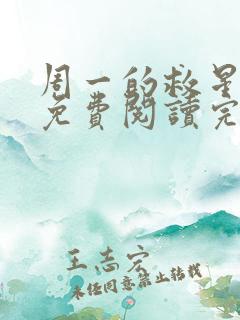 周一的救星
免費閱讀完
王志宏
未经同意禁止转载